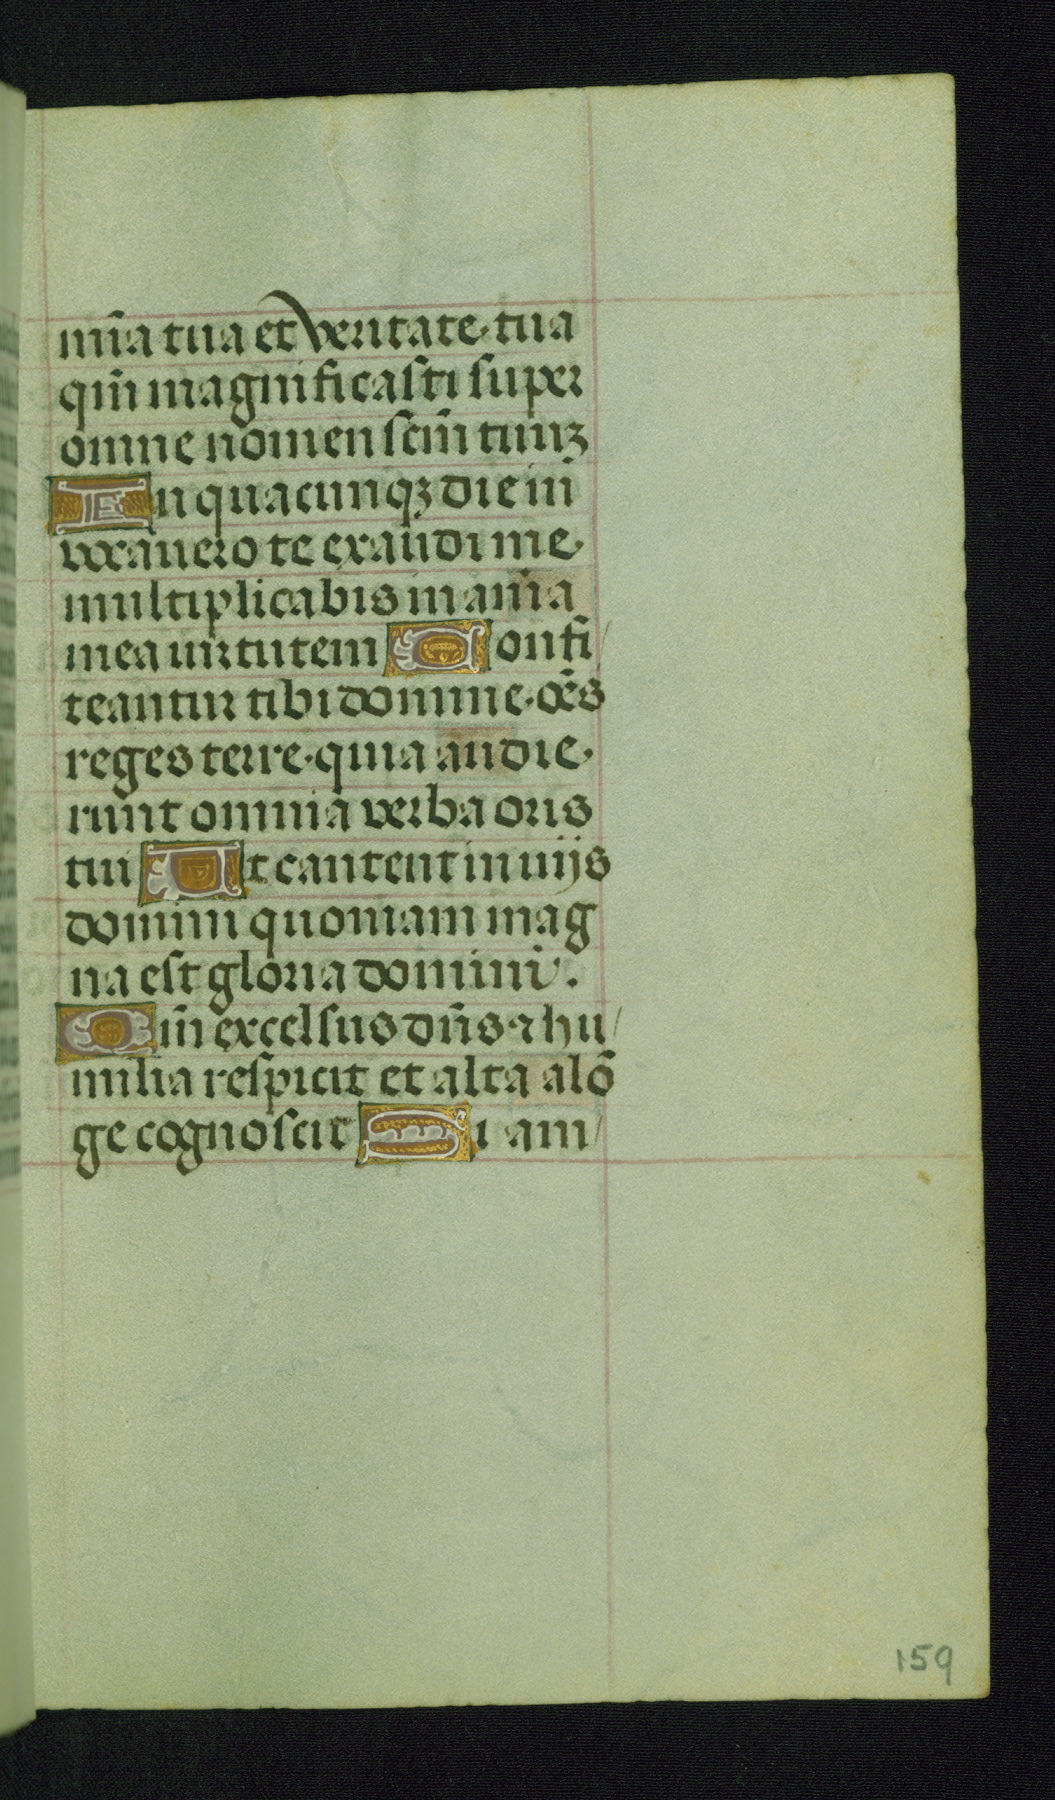 mīa tua et veritate tua
qm̄ magnificasti super
omne nomen scm̄ tuuꝫ
In quacunqꝫ die in
uocauero te exaudi me
multiplicabis in anīa
mea uirtutem Confi
teantur tibi domine oēs
reges terre quia audie
runt omnia verba oris
tui Et cantent in uijs
domini quoniam mag
na est gloria domini.
Qm̄ excelsus dn̄s ⁊ hu
milia respicit et alta alō
ge cognoscit Si am
159